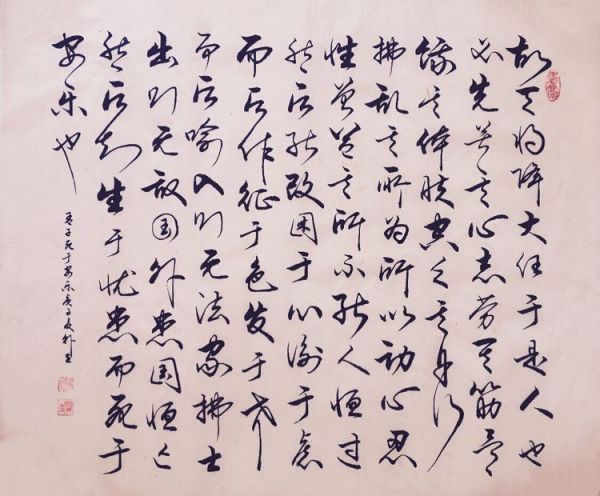 故天将降大任于是人也
必先苦其心志劳其筋骨
饿其体肤空乏其身行
拂乱其所为所以动心忍
性曾益其所不能人恒过
然后能改困于心衡于虑
而后作征于色发于声
而后喻入则无法家拂士
出则无敌国外患国恒亡
然后知生于忧患而死于
安乐也
孟子死于安乐庚子夏